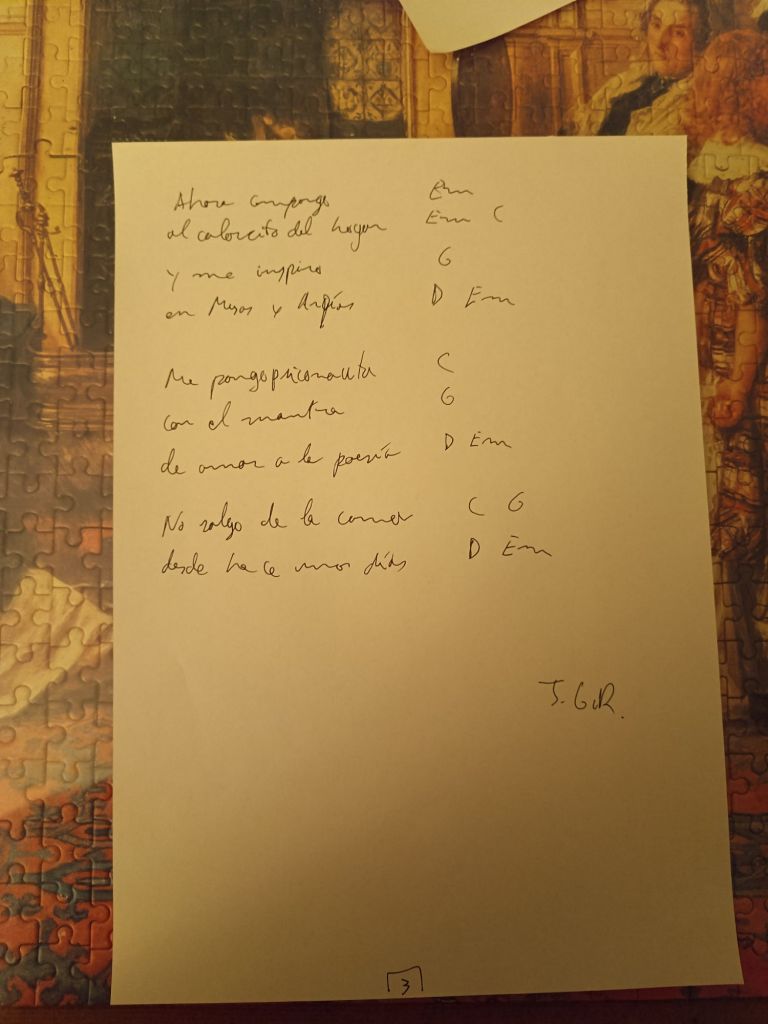 Ahora compongo Em
al calorcito del hogar Em C
y me inspiro G
en Musas y Arpías D Em
Me pongo psiconauta C
con el mantra G
de amor a la poesía D Em
No salgo de la C G
desde hace unos días D Em
J. G. R.
3